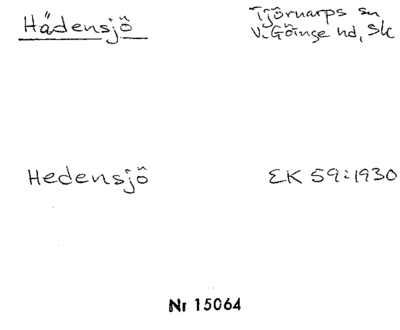 Hädensjö
Tjörnarps sn
V. Göinge hd, Sk
Hedensjö
EK 59:1930
Nr 15064